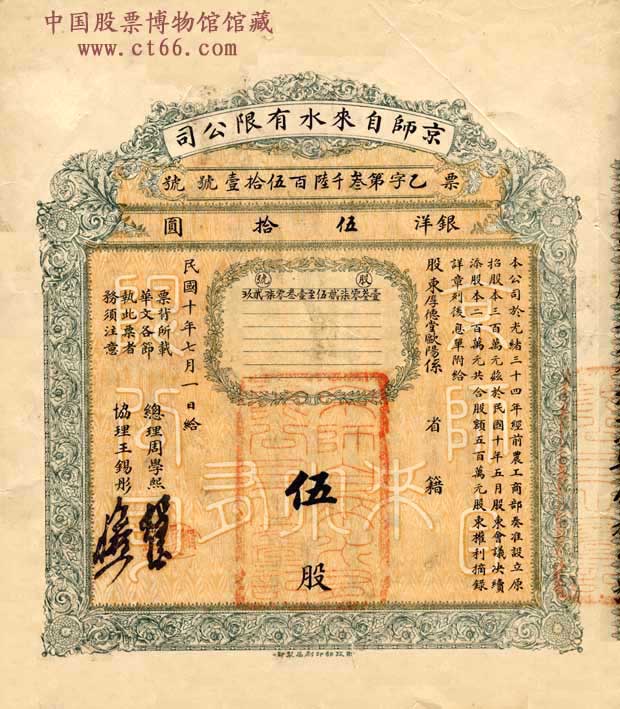 中国股票博物馆馆藏
www.ct66.com
京師自來水有限公司
票乙字第叁千陸百伍拾壹號號
銀洋伍拾圓
本公司於光緒三十四年經前農工商部奏准設立原
招股本三百萬元茲於民國十年五月股東會議决續
添股本二百萬元共合股額五百萬元股東權利摘錄
詳章列後息單附給
股東厚德堂歐陽係 省 籍
股號
壹叁零柒貳伍至壹叁零柒貳玖
伍股
民國十年七月一日給
票背所載
華文各節
執此票者
務須注意
總理周學熙
協理王錫彤
財政部印刷局製印